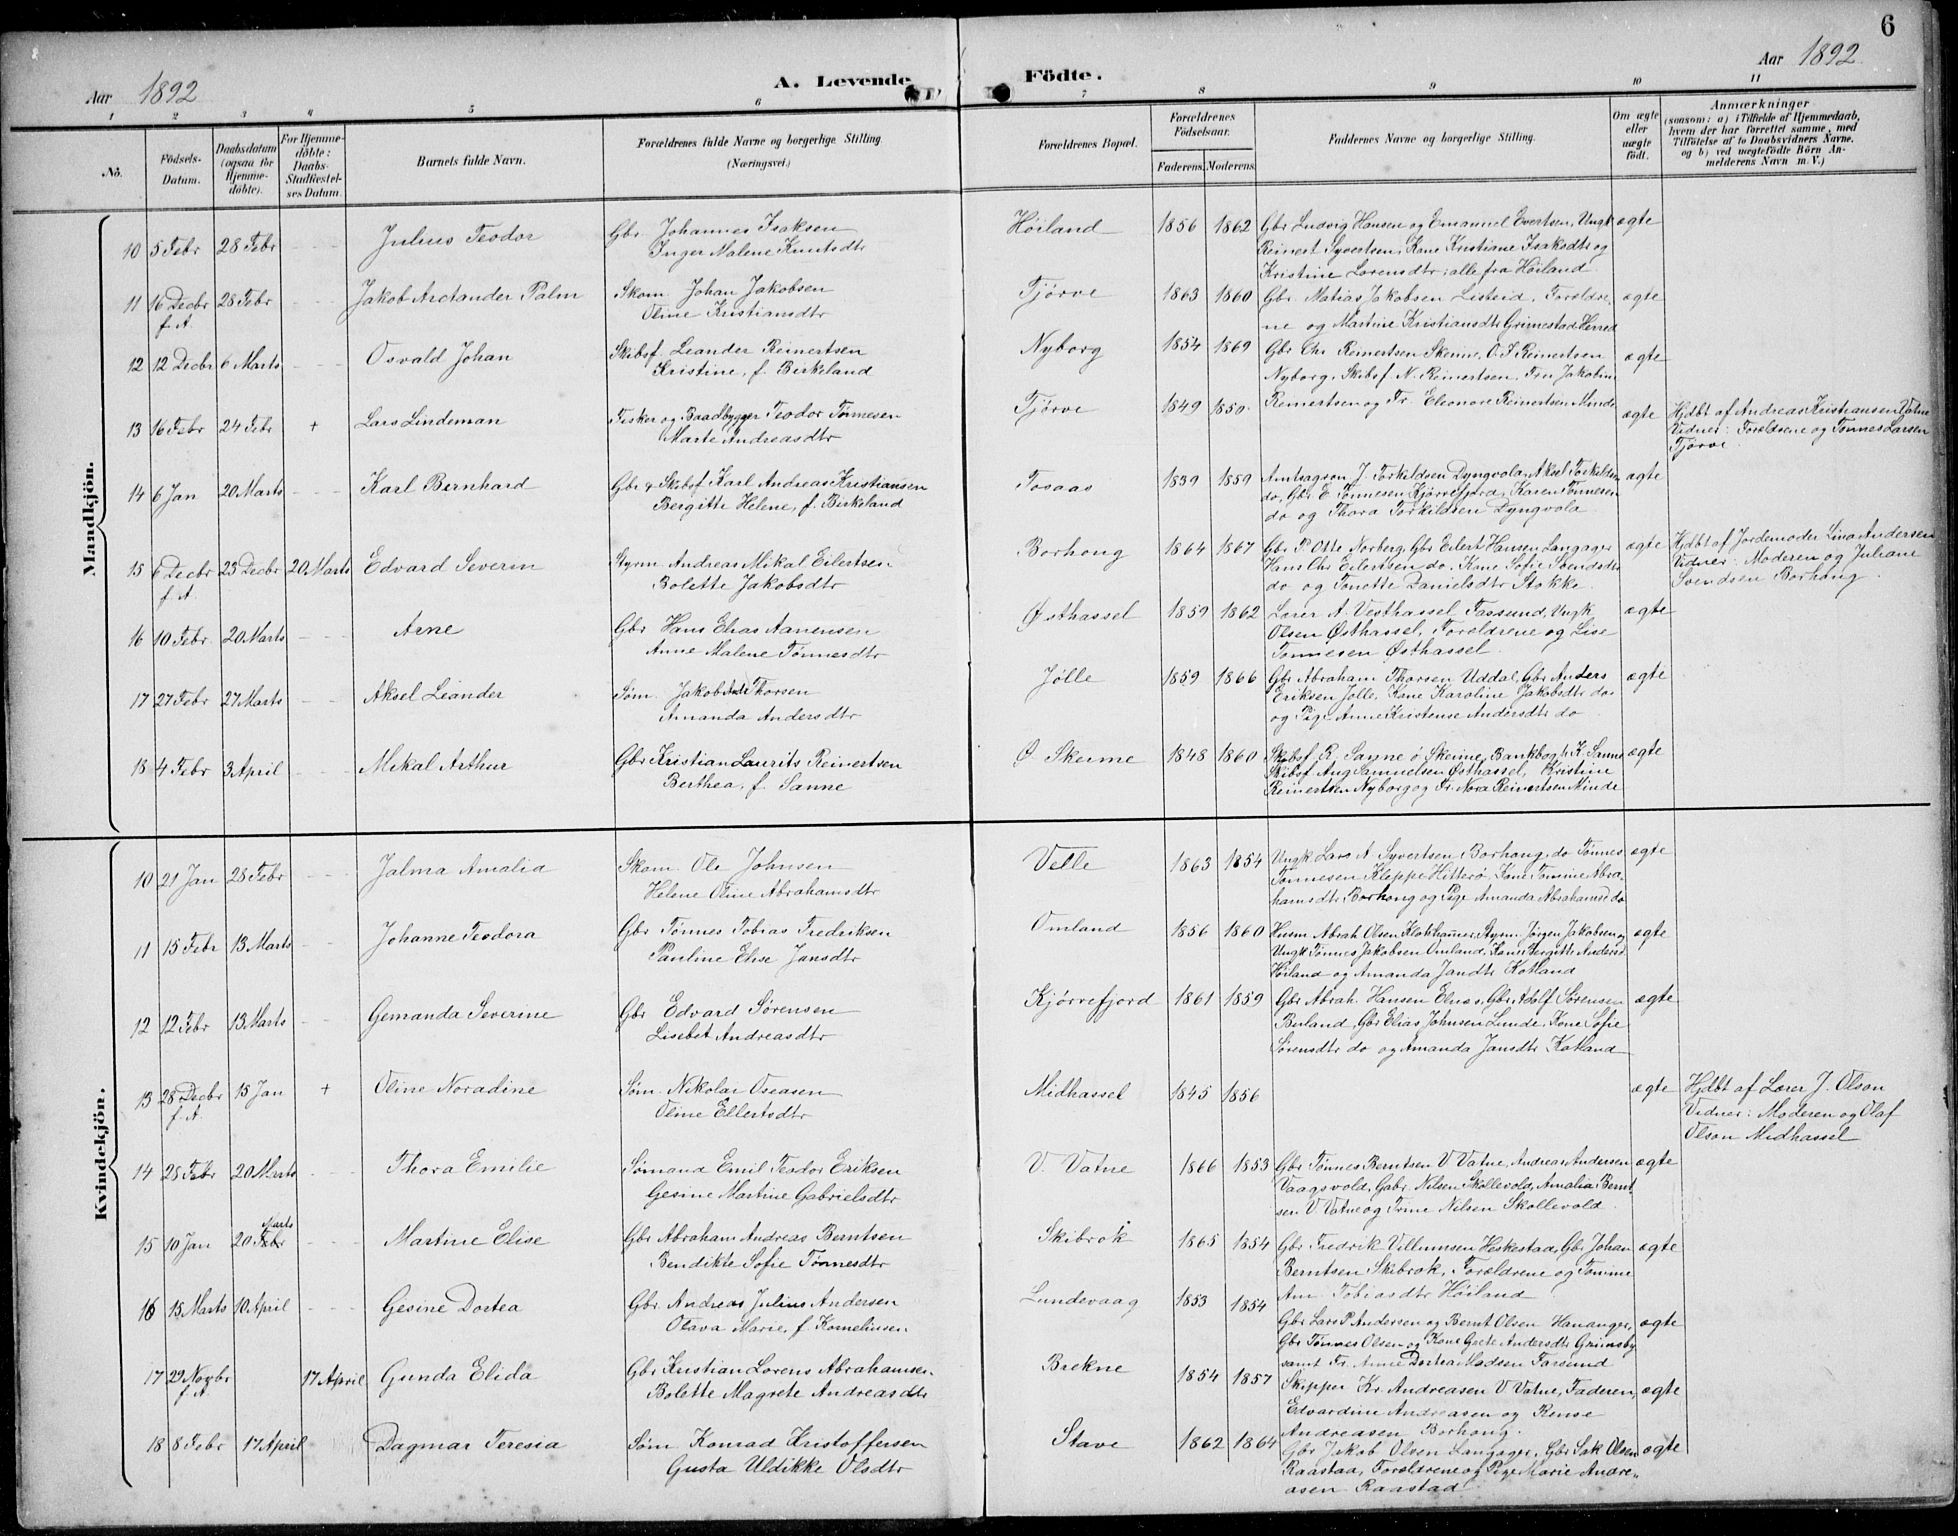 6
Aar 1892
A. Levende Födte.
Aar 1892
1 2 3 4 5 6 7 8 9 10 11
No.
Födsels-Datum.
Daabsdatum (ogsaa för Hjemme-döbte).
For Hjemme-döbte: Daabs-Stadfæstel-ses Datum.
Barnets fulde Navn.
Forældrenes fulde Navne og borgerlige Stilling. (Næringsvei.)
Forældrenes Bopæl.
Forældrenes Födselsaar.
Faderens. Moderens.
Faddernes Navne og borgerlige Stilling.
Om ægte eller uægte födt.
Anmærkninger
(saasom: a) i Tilfælde af Hjemmedaab,
hvem der har forrettet samme, med
Tilföielse af to Daabsvidners Navne.
og b) ved uægtefödte Börn An-
melderens Navn m. V.)
Mandkjön.
10 5 Febr 28 Febr Julius Teodor Gbr Johannes Isaksen
Inger Malene Knutsdtr
Höiland 1856 1862 Gbr Ludvig Hansen og Emanuel Evertsen, Ungk ægte
Reinert Syvertsen, Kone Kristiane Isaksdtr og
Kristine Lorensdtr, alle fra Höiland
11 16 Decbr f. A. 28 Febr Jakob Arctander Palm Skom Johan Jakobsen
Oline Kristiansdtr
Tjørve 1863 1860 Gbr Matias Jakobsen Listeid, Foreldre- ægte
ne og Martine Kristiansdtr Grimestad Herred
12 12 Decbr 6 Marts Osvald Johan Skibsf Leander Reinertsen
Kristine, f. Birkeland
Nyborg 1854 1869 Gbr Chr Reinertsen Skeime, O. J. Reinertsen ægte
Nyborg, Skibsf N. Reinertsen, Fru Jakobine
Reinertsen og Fr. Eleonore Reinertsen Minde
13 16 Febr 24 Febr + Lars Lindeman Fisker og Baadbygger Teodor Tønnesen
Marte Andreasdtr
Tjørve 1849 1850 ægte Hjdbt af Andreas Kristiansen Vatne
Vidner: Forældrene og Tønnes Larsen
Tjørve
14 6 Jan 20 Marts Karl Bernhard Gbr & Skibsf Karl Andreas Kristiansen
Bergitte Helene, f. Birkeland
Tosaas 1839 1859 Amtsagson J. Torkildsen Dyngvola, Aksel Torkildsen ægte
do, Gbr E. Tønnesen Kjørrefjord, Karen Tønnesen
do og Thora Torkildsen Dyngvola
15 6 Decbr f. A. 23 Decbr 20 Marts Edvard Severin Styrm Andreas Mikal Eilertsen
Bolette Jakobsdtr
Borhong 1864 1867 Gbr P. Otte Norberg, Gbr Eilert Hansen Langager ægte Hjdbt af Jordemoder Lina Andersen
Hans Chr Eilertsen do, Kone Sofie Svendsdtr Vidner: Moderen og Juliane
do og Tonette Danielsdtr Stokke Svendsen Borhong.
16 10 Febr 20 Marts Arne Gbr Hans Elias Aanensen
Anne Malene Tønnesdtr
Østhassel 1859 1862 Lærer A. Vesthassel Farsund, Ungk ægte
Olsen Østhassel, Foreldrene og Lise
Tønnesen Østhassel
17 27 Febr 27 Marts Aksel Leander Søm. Jakob Thorsen
Amanda Andersdtr
Jølle 1859 1866 Gbr Abraham Thorsen Uddal, Gbr Anders ægte
Eriksen Jølle, Kone Karoline Jakobsdtr do
og Pige Anne Kristense Andersdtr do
18 4 Febr 3 April Mikal Arthur Gbr Kristian Laurits Reinertsen
Berthea, f. Sanne
Ø Skeime 1848 1860 Skibsf R. Sanne ø Skeime, Bankbogh K. Sanne ægte
Skibsf Aug Samuelsen Østhassel, Kristine
Reinertsen Nyborg og Fr. Nora Reinertsen Minde
Kvindekjön.
10 21 Jan 28 Febr Jalma Amalia Skom Ole Johnsen
Helene Oline Abrahamsdtr
Velle 1863 1854 Ungk Lars A. Syvertsen Borhong, do Tønnes ægte
Tønnesen Kleppe Hitterø, Kone Tomine Abra-
hamsdtr Borhong og Pige Amanda Abrahamsd do
11 15 Febr 13 Marts Johanne Teodora Gbr Tønnes Tobias Fredriksen
Pauline Elise Jansdtr
Omland 1856 1860 Husm Abrah Olsen Klokhamer, Styrm Jørgen Jakobsen og ægte
Ungk Tønnes Jakobsen Omland, Kone Bergitte Andersd
Høiland og Amanda Jansdtr Kotland
12 12 Febr 13 Marts Gemanda Severine Gbr Edvard Sørensen
Lisebet Andreasdtr
Kjørrefjord 1861 1859 Gbr Abrah Hansen Elnæs, Gbr Adolf Sørensen ægte
Buland, Gbr Elias Johnsen Lunde, Kone Sofie
Sørensdtr do og Amanda Jansdtr Kotland
13 28 Decbr f. A. 15 Jan + Oline Noradine Søm. Nikolai Oseasen
Oline Ellertsdtr
Midhassel 1845 1856 ægte Hjdbt af Lærer J. Olson
Vidner: Moderen og Olaf
Olson Midhassel
14 28 Febr 20 Marts Thora Emilie Sømand Emil Teodor Eriksen
Gesine Martine Gabrielsdtr
V. Vatne 1866 1853 Gbr Tønnes Berntsen V Vatne, Andreas Andersen ægte
Vaagsvold, Gabr. Nilsen Skollevold, Amalia Bernt-
sen V. Vatne og Trine Nilsen Skollevold.
15 10 Jan 20 Febr Marts Martine Elise Gbr Abraham Andreas Berntsen
Bendikte Sofie Tønnesdtr
Skibrok 1865 1854 Gbr Fredrik Villumsen Heskestad, Gbr Johan ægte
Berntsen Skibrok, Forældrene og Tomine
Am Tobiasdtr Høiland
16 15 Marts 10 April Gesine Dortea Gbr. Andreas Julius Andersen
Olava Marie, f. Korneliusen
Lundevaag 1853 1854 Gbr Lars P Andersen og Bernt Olsen Hananger, ægte
Gbr Tønnes Olsen og Kone Grete Andersdtr Grimsby
samt Fr. Anne Dortea Madsen Farsund
17 29 Novbr f. A. 17 April Gunda Elida Gbr Kristian Lorens Abrahamsen
Bolette Magrete Andreasdtr
Brekne 1854 1857 Skipper Kr. Andreasen V Vatne, Faderen, ægte
Edvardine Andreasen og Rense
Andreasen Borhong.
18 8 Febr 17 April Dagmar Teresia Søm Konrad Kristoffersen
Gusta Uldikke Olsdtr
Stave 1862 1864 Gbr Jakob Olsen Langager, Gbr Isak Olsen ægte
Raastad, Forældrene og Pige Marie Andre-
asen Raastad